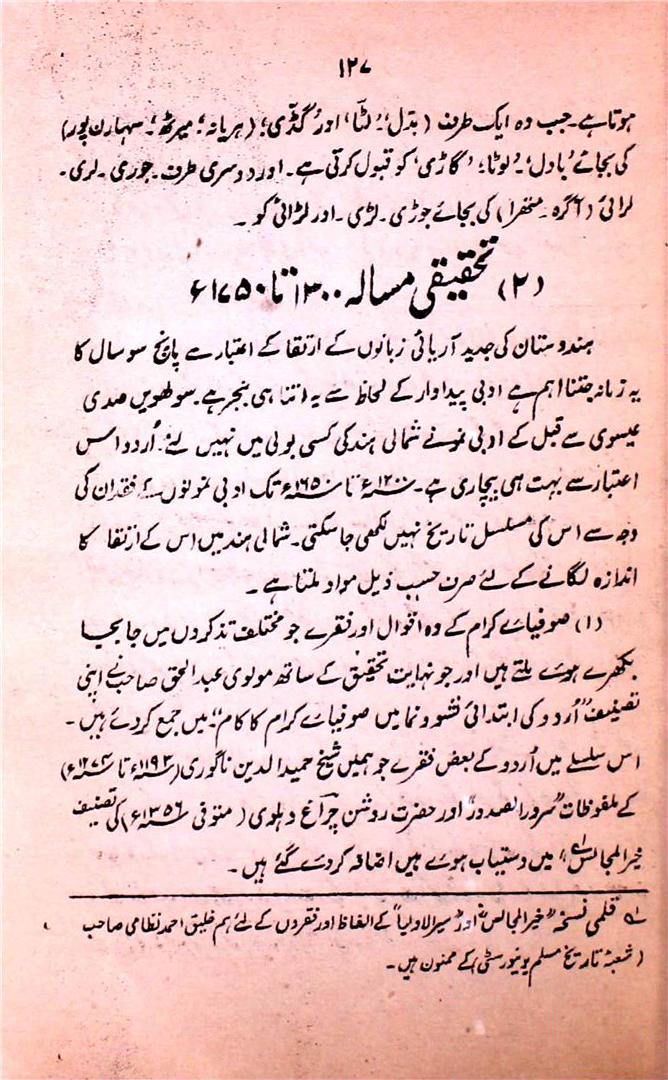 ۱۲۷
ہوتا ہے۔ جب وہ ایک طرف (بدّل، لٹّا، اور گڈّی؛ (ہریانہ؛ میرٹھ؛ سہارن پور)
کی بجائے ’بادل‘۔ ’لوٹا‘؛ ’گاڑی‘ کو قبول کرتی ہے۔ اور دوسری طرف۔ جوری۔ لری۔
لرائی (آگرہ۔ متھرا) کی بجائے جوڑی۔ لڑی۔ اور لڑائی کو۔
(۲) تحقیقی مسالہ ۱۳۰۰ تا ۱۷۵۰ء
ہندوستان کی جدید آریائی زبانوں کے ارتقا کے اعتبار سے پانچ سو سال کا
یہ زمانہ جتنا اہم ہے ادبی پیداوار کے لحاظ سے یہ اتنا ہی بنجر ہے۔ سولھویں صدی
عیسوی سے قبل کے ادبی نمونے شمالی ہند کی کسی بولی میں نہیں ملتے۔ اُردو اس
اعتبار سے بہت ہی بیچاری ہے۔ ۱۲۰۰ء تا ۱۶۵۰ء تک ادبی نمونوں کے فقدان کی
وجہ سے اس کی مسلسل تاریخ نہیں لکھی جاسکتی۔ شمالی ہند میں اس کے ارتقا کا
اندازہ لگانے کے لئے صرف حسبِ ذیل مواد ملتا ہے۔
(۱) صوفیائے کرام کے وہ اقوال اور فقرے جو مختلف تذکروں میں جابجا
بکھرے ہوے ملتے ہیں اور جو نہایت تحقیق کے ساتھ مولوی عبدالحق صاحب نے اپنی
تصنیف ”اُردو کی ابتدائی نشوونما میں صوفیائے کرام کا کام“ میں جمع کردئے ہیں۔
اس سلسلے میں اُردو کے بعض فقرے جو ہمیں شیخ حمید الدین ناگوری (۱۱۹۳ء تا ۱۲۷۴ء)
کے ملفوظات ”سرور الصدور“ اور حضرت روشن چراغ دہلوی (متوفی ۱۳۵۶ء) کی تصنیف
خیرالمجالس ۱؎“ میں دستیاب ہوے ہیں اضافہ کردئے گئے ہیں۔
۱؎ قلمی نسخہ ”خیرالمجالس“ اور ”سیرالاولیا“ کے الفاظ اور فقروں کے لئے ہم خلیق احمد نظامی صاحب
(شعبۂ تاریخ مسلم یونیورسٹی) کے ممنون ہیں۔